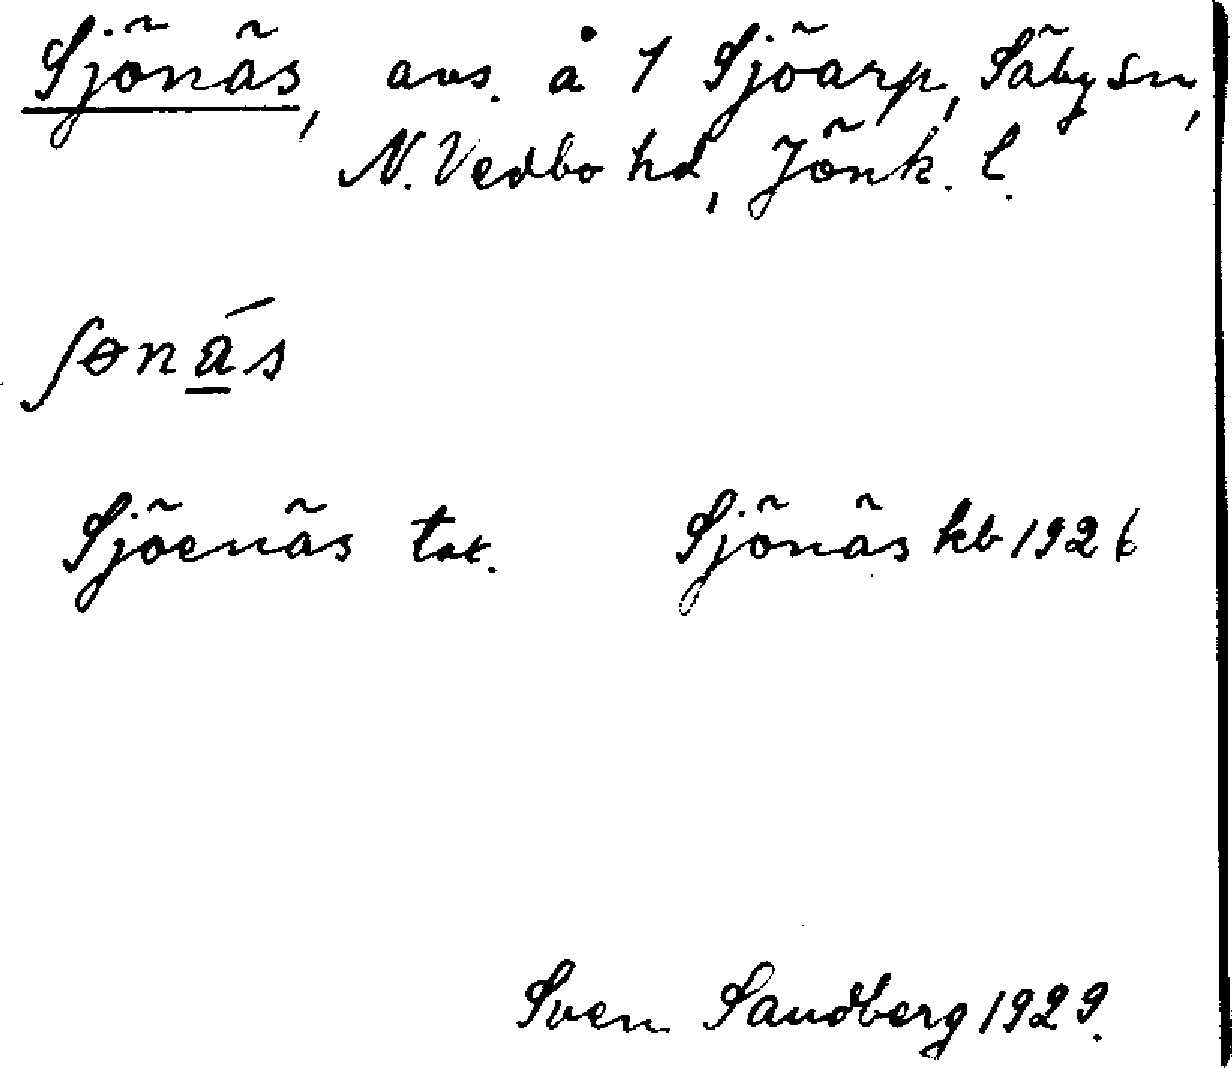 Sjönäs, avs. å 1 Sjöarp, Säby sn,
N. Vedbo hd, Jönk. l.
ʃɵná̱s
Sjöenäs tax. Sjönäs kb 1926
Sven Sandberg 1929.